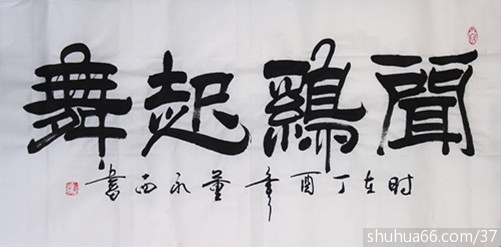 聞鷄起舞
时在丁酉年董永西書
shuhua66.com/37